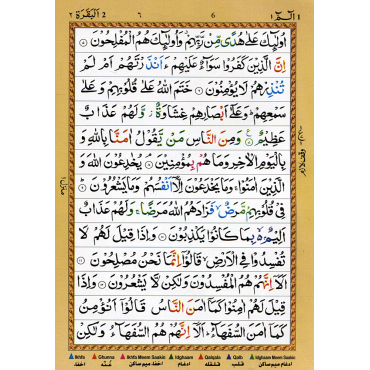 الٓمّٓ ١ 6 ٦ 2 اَلْبَقَرَة ٢
اُولٰٓئِكَ عَلٰى هُدًى مِّنْ رَّبِّهِمْ وَاُولٰٓئِكَ هُمُ الْمُفْلِحُوْنَ ۝
اِنَّ الَّذِيْنَ كَفَرُوْا سَوَآءٌ عَلَيْهِمْ ءَاَنْذَرْتَهُمْ اَمْ لَمْ
تُنْذِرْهُمْ لَا يُؤْمِنُوْنَ ۝ خَتَمَ اللّٰهُ عَلٰى قُلُوْبِهِمْ وَعَلٰى
سَمْعِهِمْ ؕ وَعَلٰٓى اَبْصَارِهِمْ غِشَاوَةٌ ؗ وَّلَهُمْ عَذَابٌ
عَظِيْمٌ ۝ وَمِنَ النَّاسِ مَنْ يَّقُوْلُ اٰمَنَّا بِاللّٰهِ وَ
بِالْيَوْمِ الْاٰخِرِ وَمَا هُمْ بِمُؤْمِنِيْنَ ۝ يُخٰدِعُوْنَ اللّٰهَ وَ
الَّذِيْنَ اٰمَنُوْا ۚ وَمَا يَخْدَعُوْنَ اِلَّآ اَنْفُسَهُمْ وَمَا يَشْعُرُوْنَ ۝
فِيْ قُلُوْبِهِمْ مَّرَضٌ ۙ فَزَادَهُمُ اللّٰهُ مَرَضًا ۚ وَلَهُمْ عَذَابٌ
اَلِيْمٌۢ ۙ بِمَا كَانُوْا يَكْذِبُوْنَ ۝ وَاِذَا قِيْلَ لَهُمْ لَا
تُفْسِدُوْا فِي الْاَرْضِ ۙ قَالُوْٓا اِنَّمَا نَحْنُ مُصْلِحُوْنَ ۝
اَلَآ اِنَّهُمْ هُمُ الْمُفْسِدُوْنَ وَلٰكِنْ لَّا يَشْعُرُوْنَ ۝ وَاِذَا
قِيْلَ لَهُمْ اٰمِنُوْا كَمَآ اٰمَنَ النَّاسُ قَالُوْٓا اَنُؤْمِنُ
كَمَآ اٰمَنَ السُّفَهَآءُ ؕ اَلَآ اِنَّهُمْ هُمُ السُّفَهَآءُ وَلٰكِنْ
Ikhfa Ghunna Ikhfa Meem Saakin Idghaam Qalqala Qalb Idghaam Meem Saakin
اخفاء غنّه اخفاء میم ساکن ادغام قلقله قلب ادغام میم ساکن